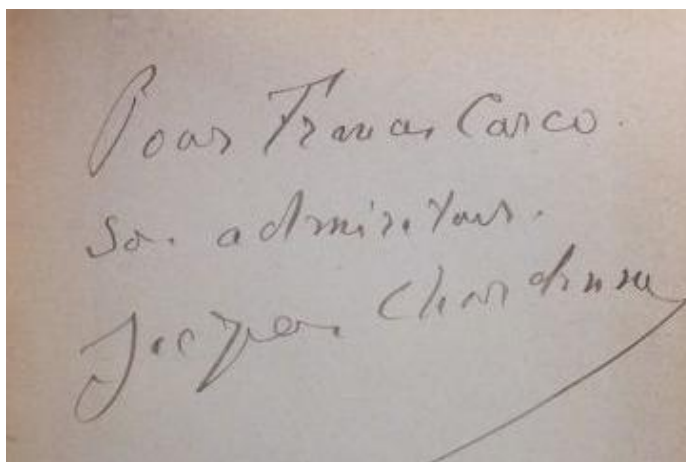 Pour Francis Carco.
son admirateur.
Jacques Chardonne